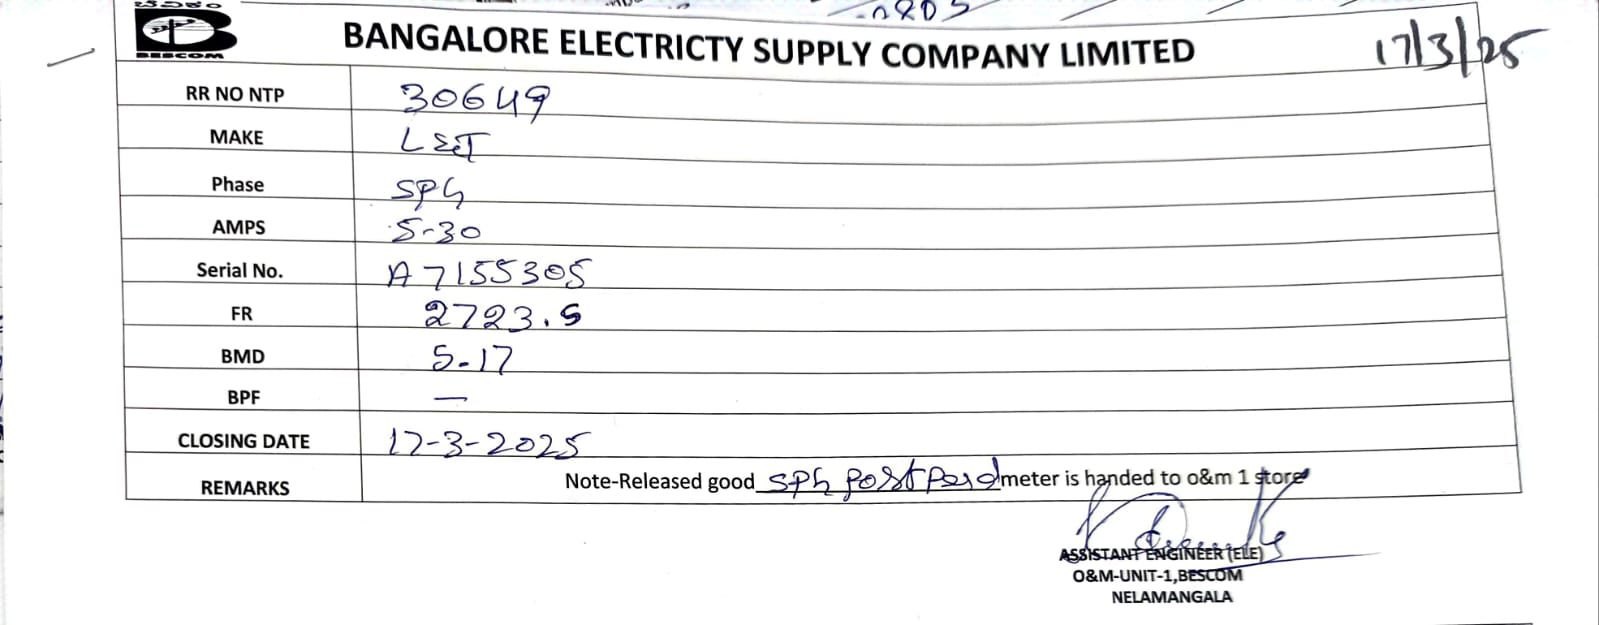 BESCOM
BANGALORE ELECTRICTY SUPPLY COMPANY LIMITED
17/3/25
RR NO NTP 30649
MAKE L&T
Phase SPh
AMPS 5-30
Serial No. A7155305
FR 2723.5
BMD 5-17
BPF —
CLOSING DATE 17-3-2025
REMARKS Note-Released good SPh postpaid meter is handed to o&m 1 store
ASSISTANT ENGINEER (ELE)
O&M-UNIT-1,BESCOM
NELAMANGALA